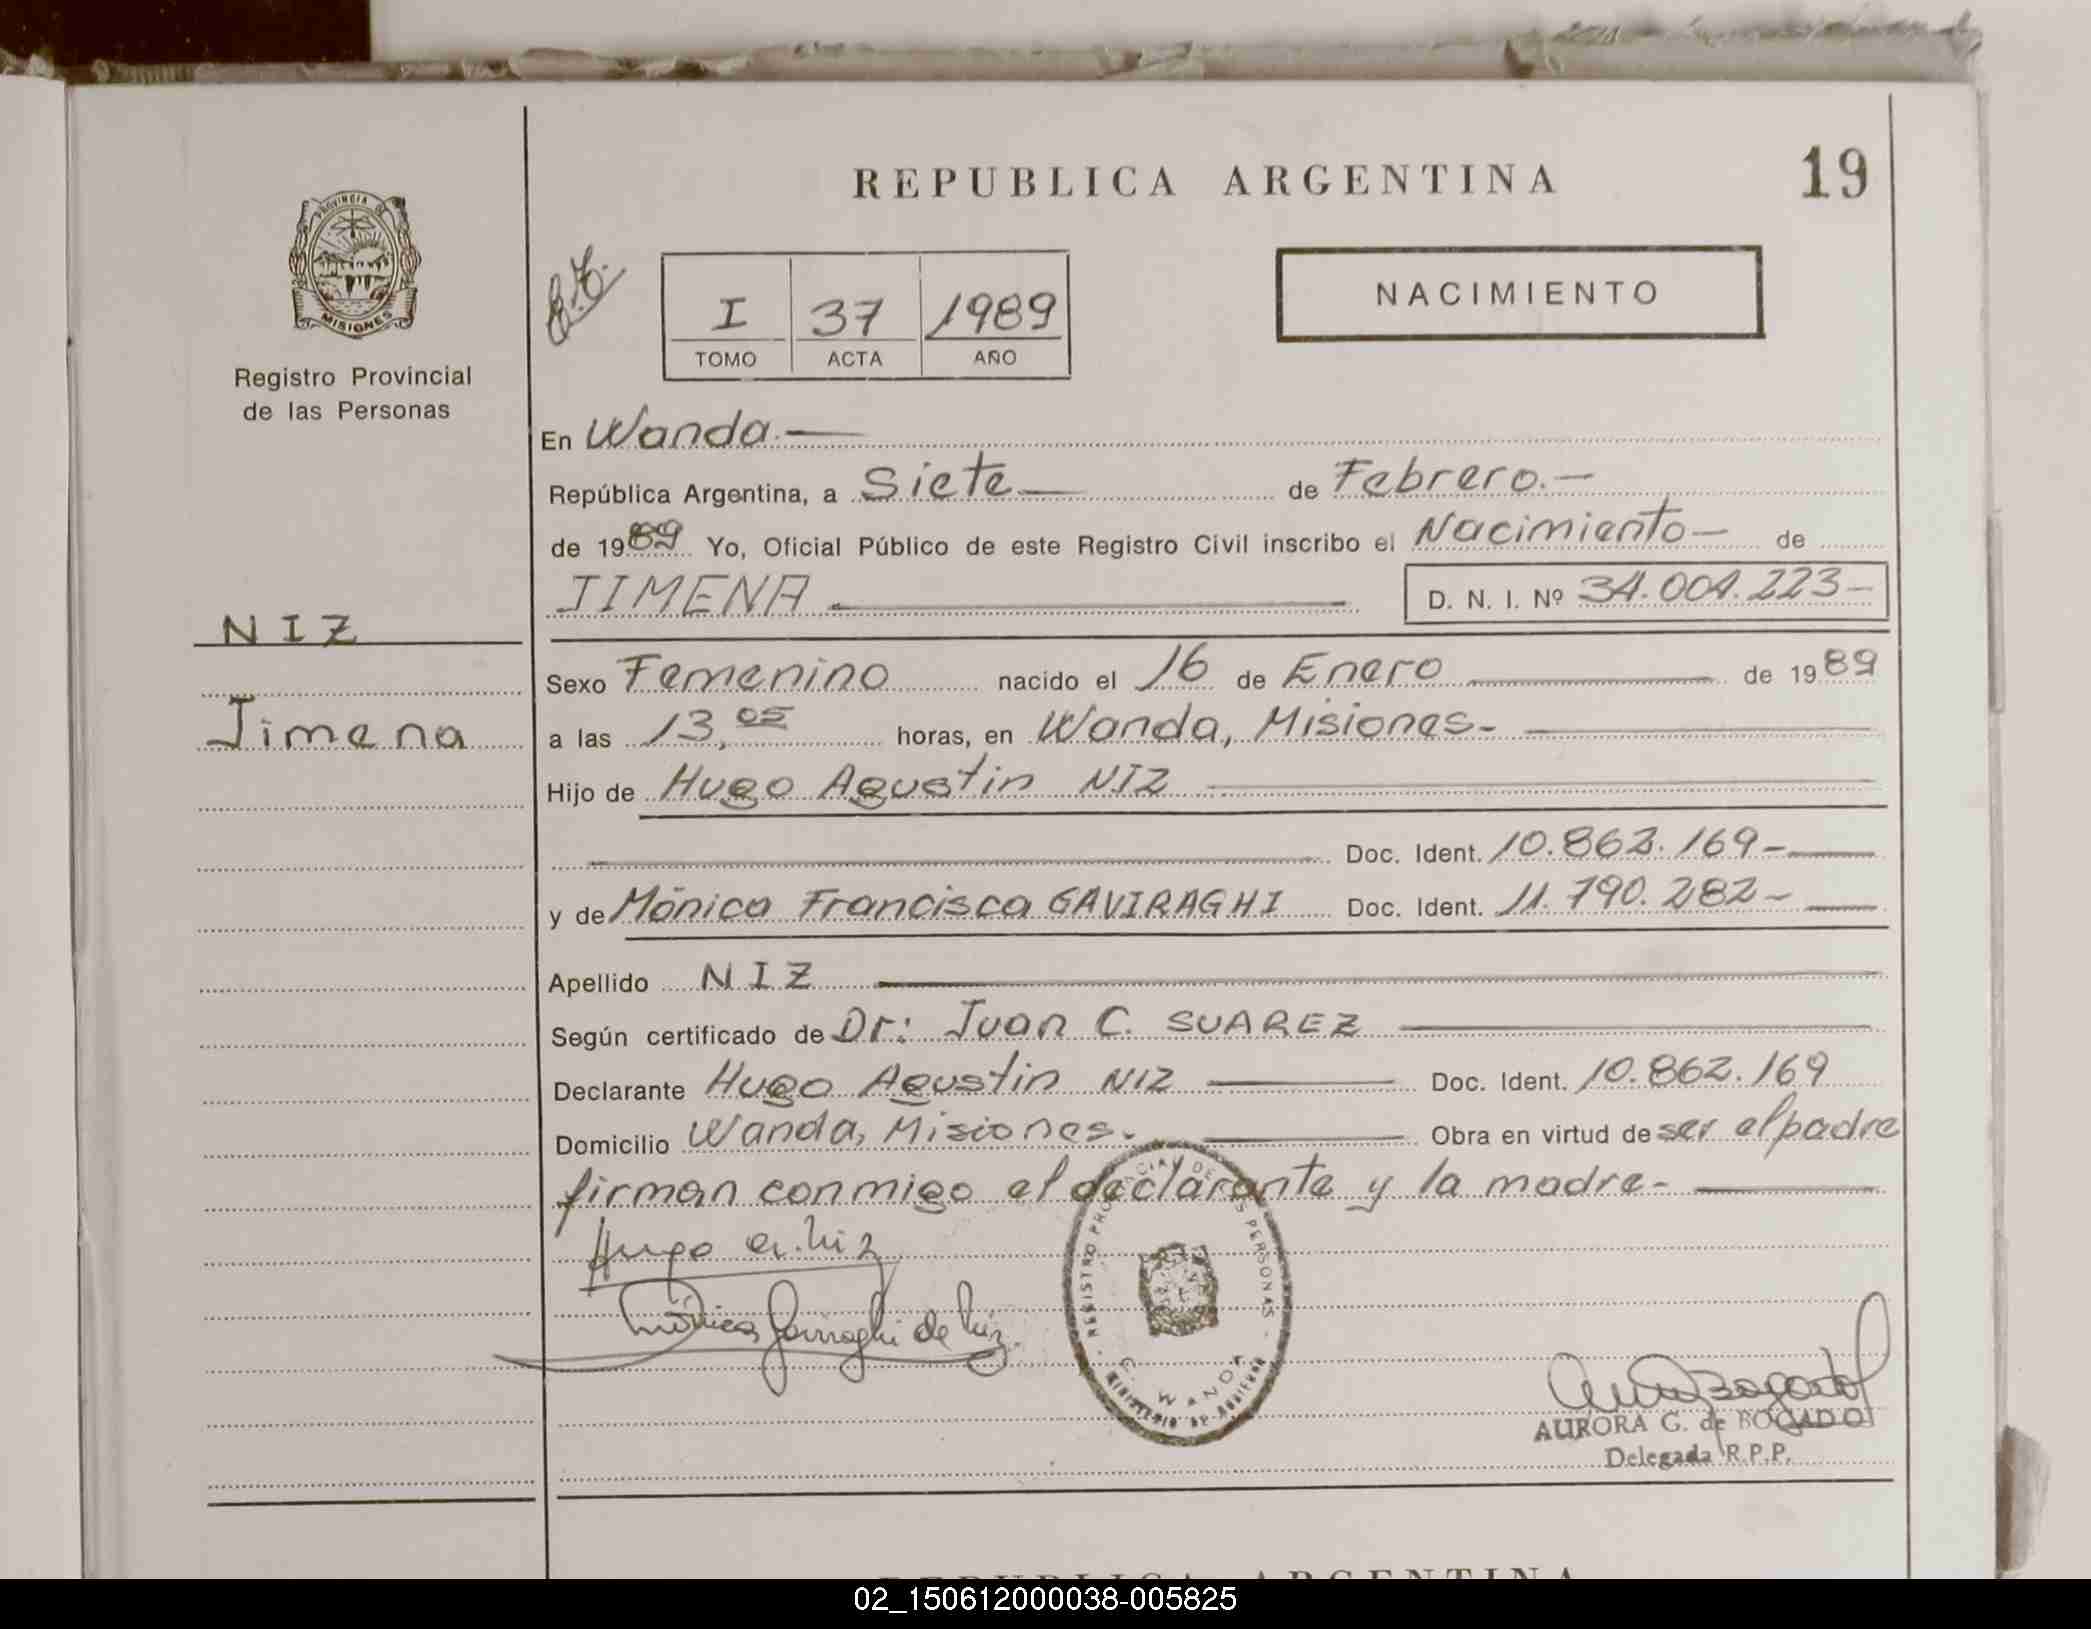 REPUBLICA ARGENTINA
19
PROVINCIA DE
MISIONES
Registro Provincial
de las Personas
I 37 1989
TOMO ACTA AÑO
NACIMIENTO
En Wanda.—
República Argentina, a Siete— de Febrero.—
de 1989 Yo, Oficial Público de este Registro Civil inscribo el Nacimiento— de
JIMENA — D. N. I. Nº 34.004.223—
NIZ
Jimena
Sexo Femenino nacido el 16 de Enero — de 1989
a las 13,05 horas, en Wanda, Misiones-
Hijo de Hugo Agustin NIZ —
Doc. Ident. 10.862.169-
y de Mónica Francisca GAVIRAGHI Doc. Ident. 11.790.282-
Apellido NIZ —
Según certificado de Dr: Juan C. SUAREZ —
Declarante Hugo Agustin NIZ — Doc. Ident. 10.862.169
Domicilio Wanda, Misiones. — Obra en virtud de ser el padre
firman conmigo el declarante y la madre- —
Hugo a. Niz
Mónica Gaviraghi de Niz.
REGISTRO PROVINCIAL DE LAS PERSONAS
WANDA
AURORA G. de BOGADO
Delegada R.P.P.
REPUBLICA ARGENTINA
02_150612000038-005825